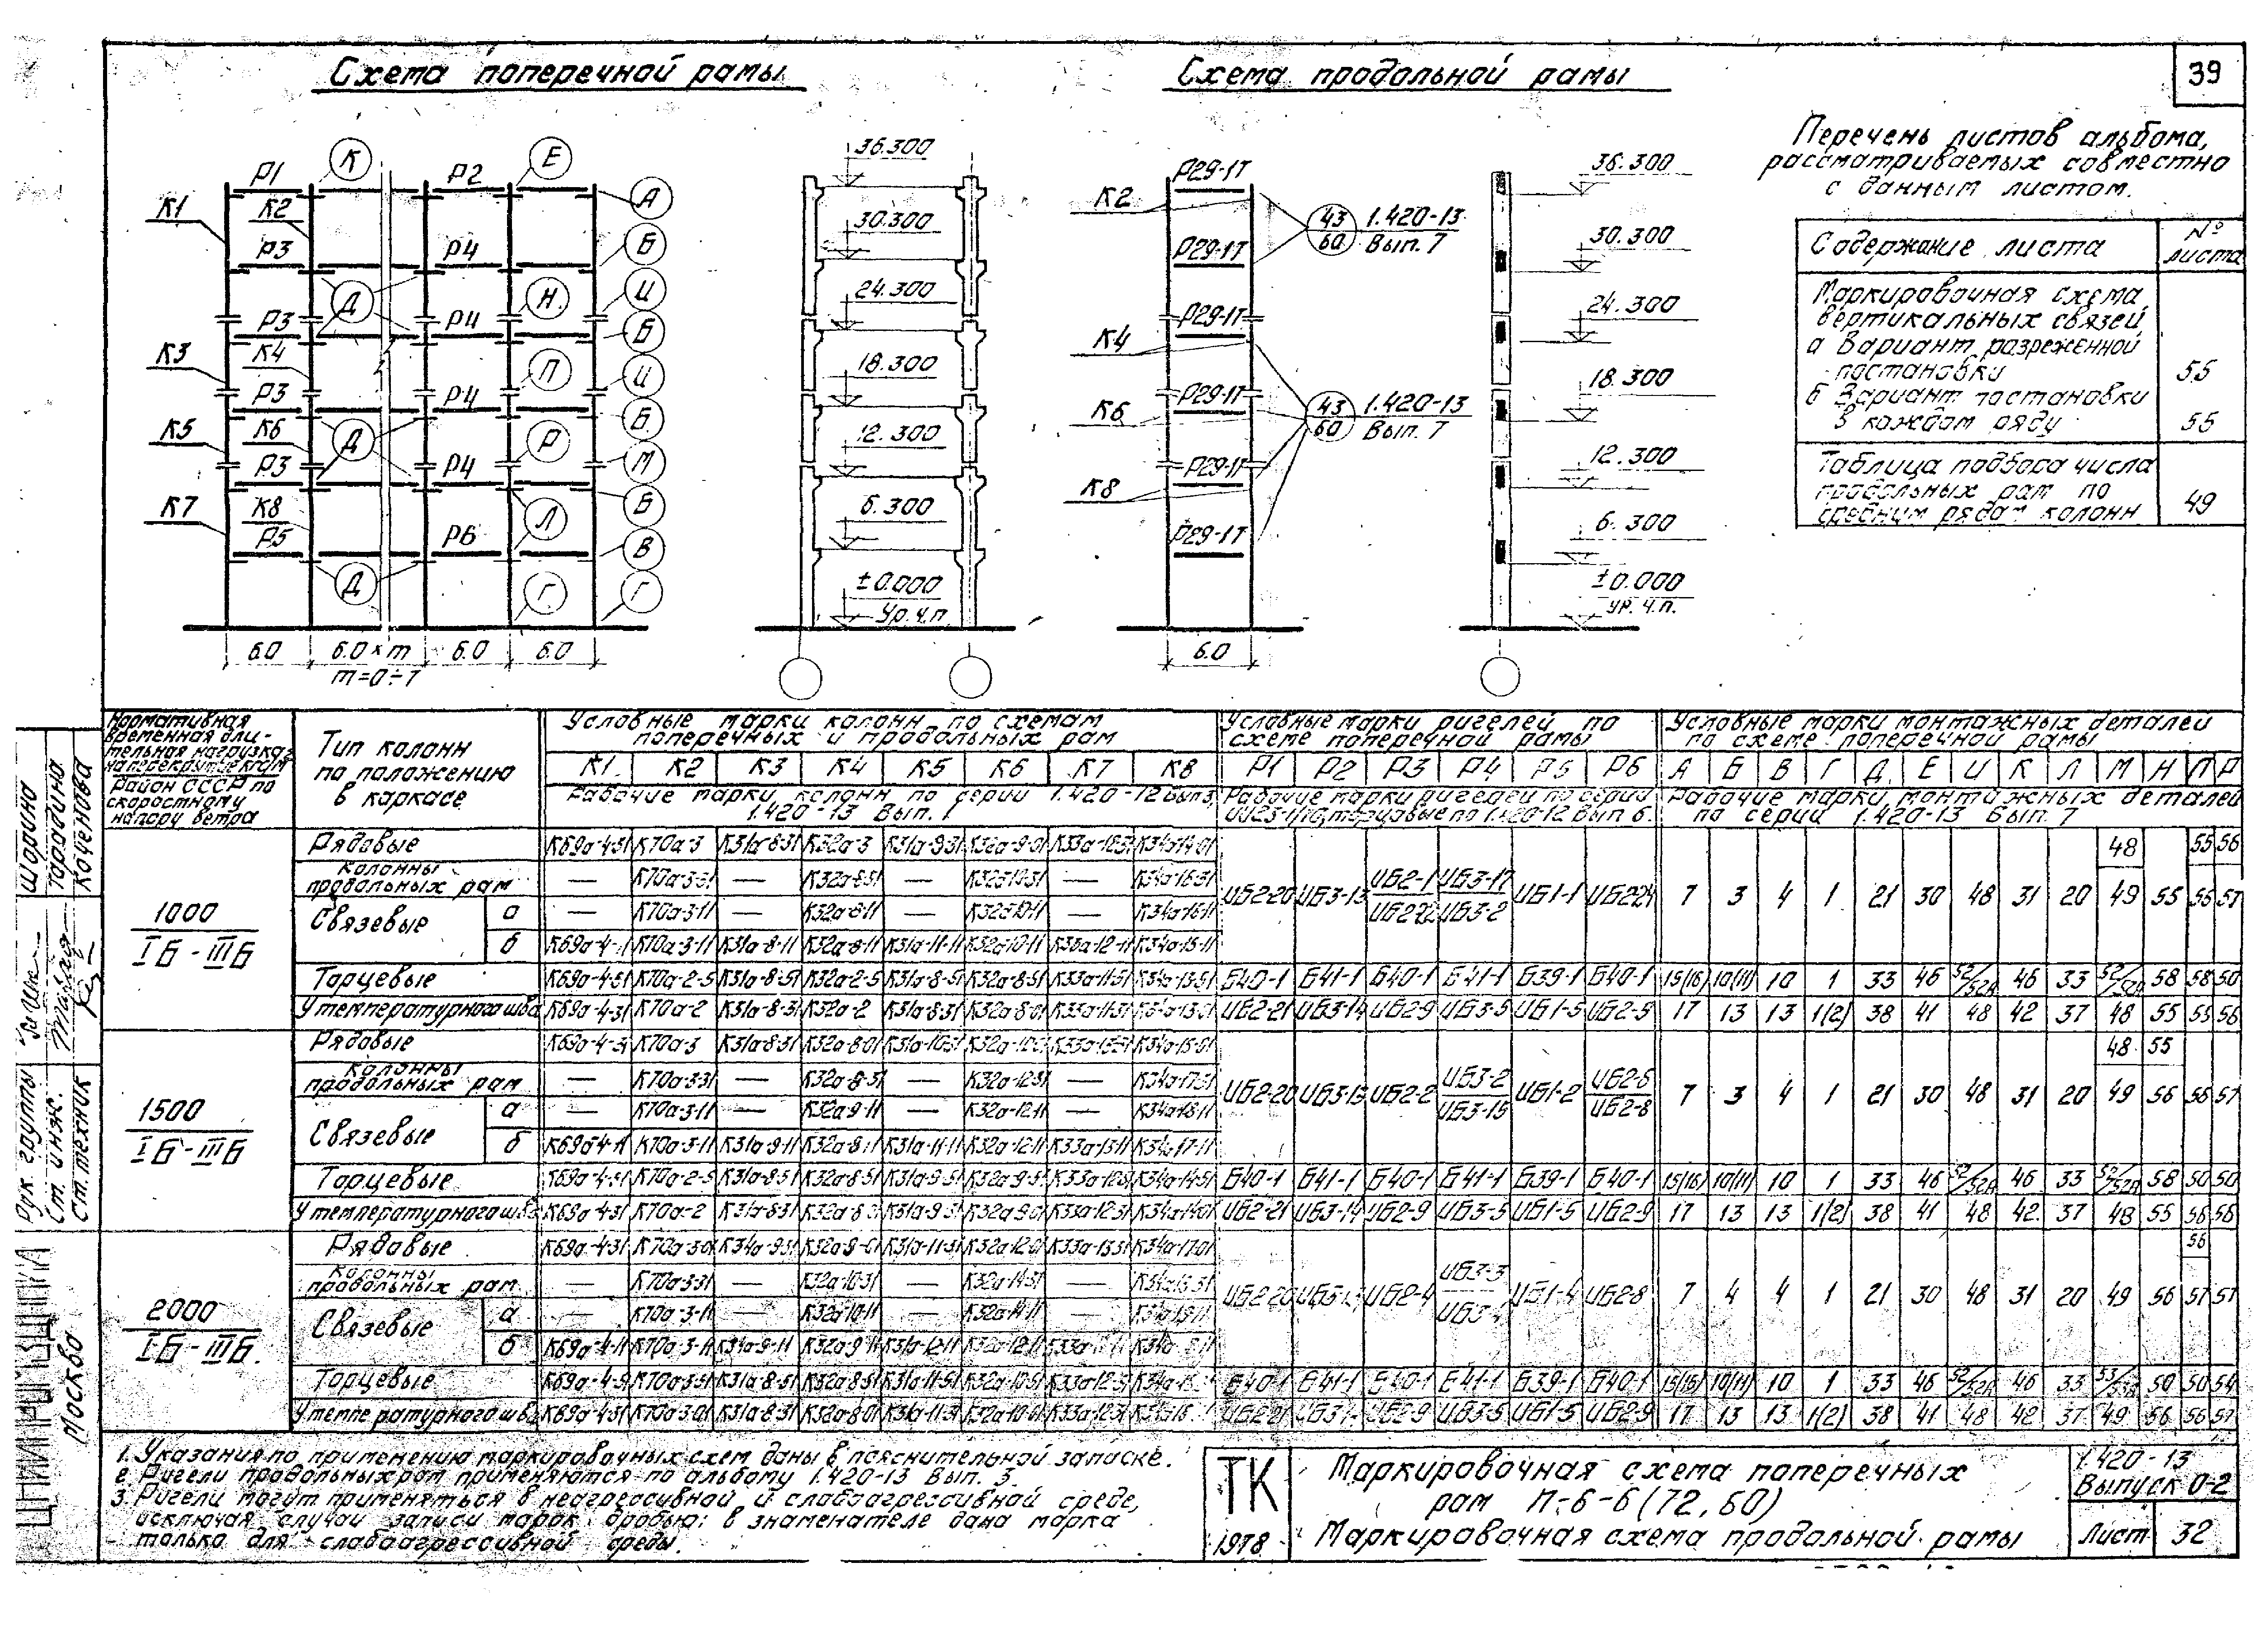 39
Схема поперечной рамы
Схема продольной рамы
Перечень листов альбома,
рассматриваемых совместно
с данным листом.
Содержание листа
№ листа
Маркировочная схема
вертикальных связей
а Вариант разреженной
постановки
55
б Вариант постановки
в каждом ряду
55
Таблица подбора числа
продольных рам по
средним рядам колонн
49
К Е
Р1 Р2 А
К1 К2
Р3 Р4 Б
Д Н И
Р3 Р4 Б
К3 К4 П И
Р3 Р4 Б
К5 К6 Д Р
Р3 Р4 М
К7 К8 Л Б
Р5 Р6 В
Д Г Г
6.0 6.0×m 6.0 6.0
m=0÷7
36.300
30.300
24.300
18.300
12.300
6.300
±0.000
Ур.ч.п.
Р29-1Т
К2
43 1.420-13
60 Вып. 7
Р29-1Т
Р29-1Т
К4
Р29-1Т
К6
43 1.420-13
60 Вып. 7
Р29-1Т
К8
Р29-1Т
6.0
36.300
30.300
24.300
18.300
12.300
6.300
±0.000
Ур.ч.п.
Нормативная
временная дли-
тельная нагрузка
на перекрытие кгс/м
Район СССР по
скоростному
напору ветра
Тип колонн
по положению
в каркасе
Условные марки колонн по схемам
поперечных и продольных рам
К1 К2 К3 К4 К5 К6 К7 К8
Рабочие марки колонн по серии 1.420-12 Вып.3,
1.420-13 Вып. 1
Условные марки ригелей по
схеме поперечной рамы
Р1 Р2 Р3 Р4 Р5 Р6
Рабочие марки ригелей по серии
ИИ23-1/70, торцовые по 1.420-12 Вып 6.
Условные марки монтажных деталей
по схеме поперечной рамы
А Б В Г Д Е И К Л М Н П Р
Рабочие марки монтажных деталей
по серии 1.420-13 Вып. 7
1000
IБ-IIIБ
Рядовые К69а-4-31 К70а-3 К31а-8-31 К32а-3 К31а-9-31 К32а-9-01 К34а-14-01
48 55 56
Колонны
продольных рам — К70а-3-31 — К32а-8-31 — К32а-10-31 — К34а-16-31
ИБ2-20 ИБ3-13 ИБ2-1 ИБ3-17 ИБ1-1 ИБ2-24 7 3 4 1 21 30 48 31 20 49 55 56 57
ИБ2-22 ИБ3-2
Связевые а — К70а-3-11 — К32а-8-11 — К32а-10-11 — К34а-16-11
б К70а-3-11 К31а-8-11 К32а-8-11 К31а-11-11 К32а-10-11 К33а-12-11 К34а-15-11
Торцевые К69а-4-51 К70а-2-5 К31а-8-51 К32а-2-5 К31а-8-51 К32а-8-51 К33а-11-51 К34а-13-51 Б40-1 Б41-1 Б40-1 Б41-1 Б39-1 Б40-1 15(16) 10(11) 10 1 33 46 52/52А 46 33 52/52А 58 58 50
У температурного шва К69а-4-31 К70а-2 К31а-8-31 К32а-2 К31а-8-31 К32а-8-01 К33а-11-31 К34а-13-01 ИБ2-21 ИБ3-14 ИБ2-9 ИБ3-5 ИБ1-5 ИБ2-9 17 13 13 1(2) 38 41 48 42 37 48 55 55 56
1500
IБ-IIIБ
Рядовые К69а-4-31 К70а-3 К31а-8-31 К32а-8-01 К31а-10-31 К34а-15-01
48 55
Колонны
продольных рам — К70а-3-31 — К32а-8-31 — К32а-12-31 — К34а-17-31
ИБ2-20 ИБ3-13 ИБ2-2 ИБ3-2 ИБ1-2 ИБ2-6 7 3 4 1 21 30 48 31 20 49 56 56 57
ИБ3-15 ИБ2-8
Связевые а — К70а-3-11 — К32а-9-11 — К32а-12-11 — К34а-18-11
б К70а-3-11 К31а-9-11 К32а-8-11 К31а-11-11 К32а-12-11 К33а-13-11 К34а-17-11
Торцевые К69а-4-51 К70а-2-5 К31а-8-51 К32а-8-51 К31а-9-51 К32а-9-51 К33а-12-51 К34а-14-51 Б40-1 Б41-1 Б40-1 Б41-1 Б39-1 Б40-1 15(16) 10(11) 10 1 33 46 52/52А 46 33 52/52А 58 50 50
У температурного шва К69а-4-31 К70а-2 К31а-8-31 К31а-9-31 К32а-9-01 К33а-12-31 К34а-14-01 ИБ2-21 ИБ3-14 ИБ2-9 ИБ3-5 ИБ1-5 ИБ2-9 17 13 13 1(2) 38 41 48 42 37 48 55 56 56
2000
IБ-IIIБ.
Рядовые К69а-4-31 К34а-9-31 К32а-9-01 К31а-11-31 К32а-12-01 К33а-13-31 К34а-17-01
56
Колонны
продольных рам — К70а-3-31 — К32а-10-31 — К32а-14-31 —
ИБ2-20 ИБ2-4 ИБ3-3 ИБ1-4 ИБ2-8 7 4 4 1 21 30 48 31 20 49 56 57 57
Связевые а — К70а-3-11 — К32а-10-11 — К32а-14-11 —
б К69а-4-11 К70а-3-11 К34а-9-11 К32а-9-11 К31а-12-11 К32а-12-11
Торцевые К69а-4-51 К70а-3-51 К31а-8-51 К32а-8-51 К31а-11-51 К32а-10-51 К33а-12-51 Б40-1 Б41-1 Б40-1 Б41-1 Б39-1 Б40-1 15(16) 10(11) 10 1 33 46 52/52А 46 33 50 50 54
У температурного шва К69а-4-31 К70а-3-01 К31а-8-31 К32а-8-01 К31а-11-31 К32а-10-01 К33а-12-31 ИБ2-21 ИБ2-9 ИБ3-5 ИБ1-5 ИБ2-9 17 13 13 1(2) 38 41 48 42 37 49 56 56 57
1. Указания по применению маркировочных схем даны в пояснительной записке.
2. Ригели продольных рам применяются по альбому 1.420-13 Вып. 3.
3. Ригели могут применяться в неагрессивной и слабоагрессивной среде,
исключая случаи записи марок дробью: в знаменателе дана марка
только для слабоагрессивной среды.
ТК
1978
Маркировочная схема поперечных
рам П-6-6(72, 60)
Маркировочная схема продольной рамы
1.420-13
Выпуск 0-2
Лист 32
Рук. группы Шорина
Ст. инж. Тарадина
Ст. техник Коченова
ЦНИИПРОМЗДАНИЙ
Москва